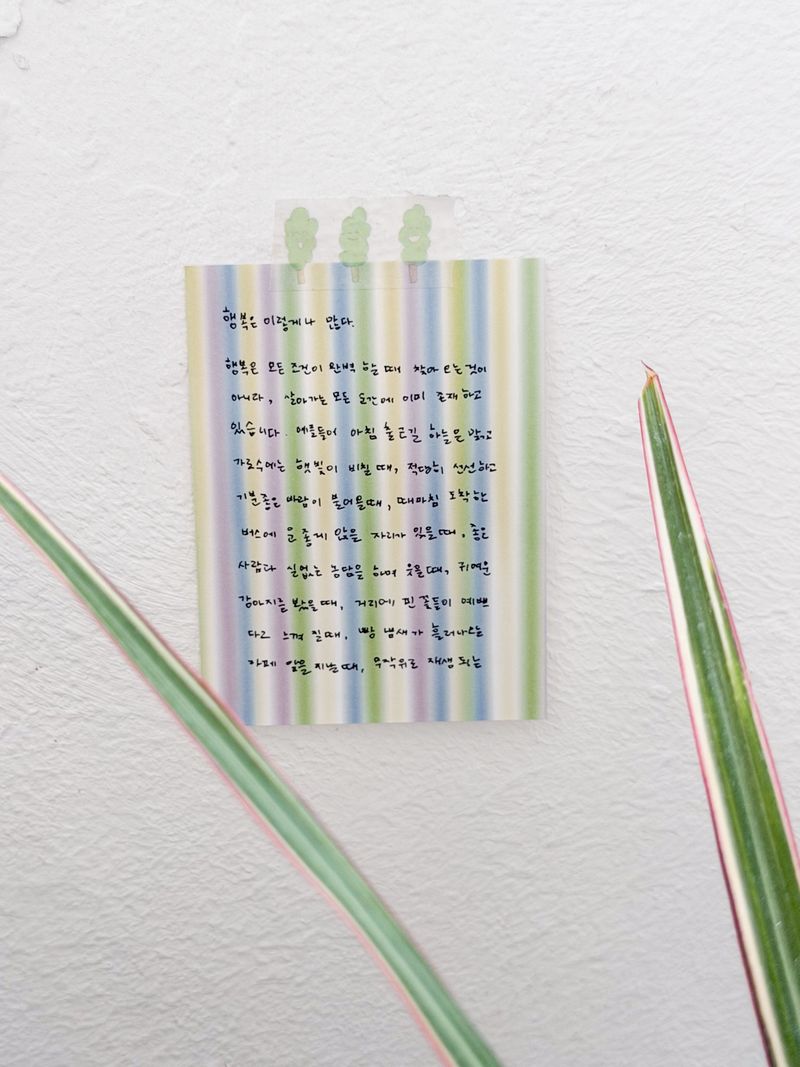 행복은 이렇게나 많다.
행복은 모든 조건이 완벽 할 때 찾아 오는 것이
아니라, 살아가는 모든 순간에 이미 존재하고
있습니다. 예를들어 아침 출근길 하늘은 맑고
가로수에는 햇빛이 비칠 때, 적당히 선선하고
기분좋은 바람이 불어올때, 때마침 도착한
버스에 운 좋게 앉을 자리가 있을 때, 좋은
사람과 실없는 농담을 하며 웃을 때, 귀여운
강아지를 봤을 때, 거리에 핀 꽃들이 예쁘
다고 느껴 질 때, 빵 냄새가 흘러나오는
카페 앞을 지날 때, 무작위로 재생 되는